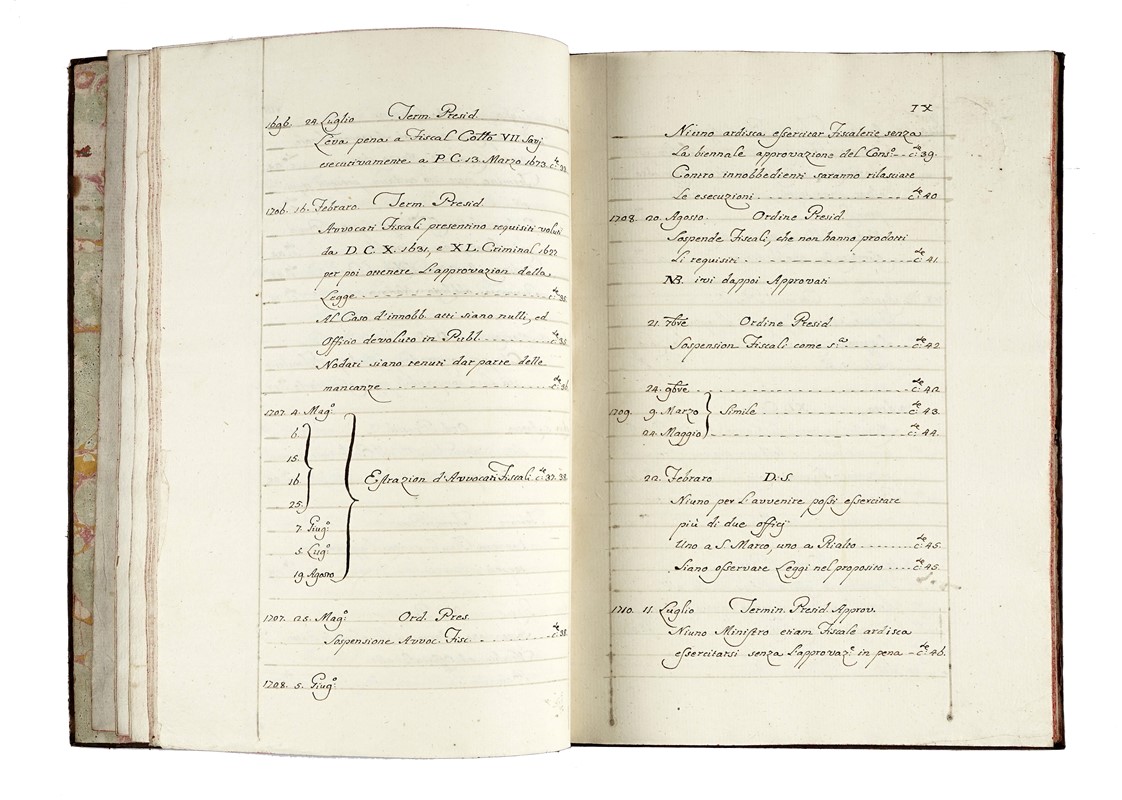 1696. 24. Luglio Term. Presid.
Leva pena a Fiscal Cotto VII Savj
esecutivamente a P. C. 13. Marzo 1673. c:te 33.
1706. 16. Febraro. Term. Presid.
Avvocati Fiscali presentino requisiti voluti
da D. C. X. 1631, e XL. Criminal 1677
per poi ottenere l'approvazion della
Legge - - - c:te 35.
Al Caso d'innobb. atti siano nulli, ed
Officio devoluto in Publ. - - - c:te 35.
Nodari siano tenuti dar parte delle
mancanze - - - c:te 36.
1707. 4. Mag:o
6.
15.
16.
25.
Estrazion d'Avvocati Fiscali c:te 37. 38.
7. Giug:o
5. Lug:o
19. Agosto
1707. 25. Mag:o Ord. Pres.
Sospensione Avvoc. Fisc. - - - c:te 38.
1708. 5. Giug:o
IX
Niuno ardisca essercitar Fiscalerie senza
la biennale approvazione del Cons:o - - c:te 39.
Contro innobbedienti saranno rilasciate
le esecuzioni - - - c:te 40
1708. 20. Agosto. Ordine Presid.
Sospende Fiscali, che non hanno prodotti
li requisiti - - - c:te 41.
NB. ivi dappoi Approvati
21. 7bre Ordine Presid.
Sospension Fiscali come s:a - - - c:te 42.
24. 9bre - - - c:te 42.
1709. 9. Marzo Simile - - - c:te 43.
24. Maggio - - - c:te 44.
22. Febraro D. S.
Niuno per l'avvenire possi essercitare
più di due officj
Uno a S. Marco, uno a Rialto - - - c:te 45.
Siano osservate Leggi nel proposito - - - c:te 45.
1710. 11. Luglio Termin. Presid. Approv.
Niuno Ministro etiam Fiscale ardisca
essercitarsi senza l'approvaz:e in pena - c:te 46.